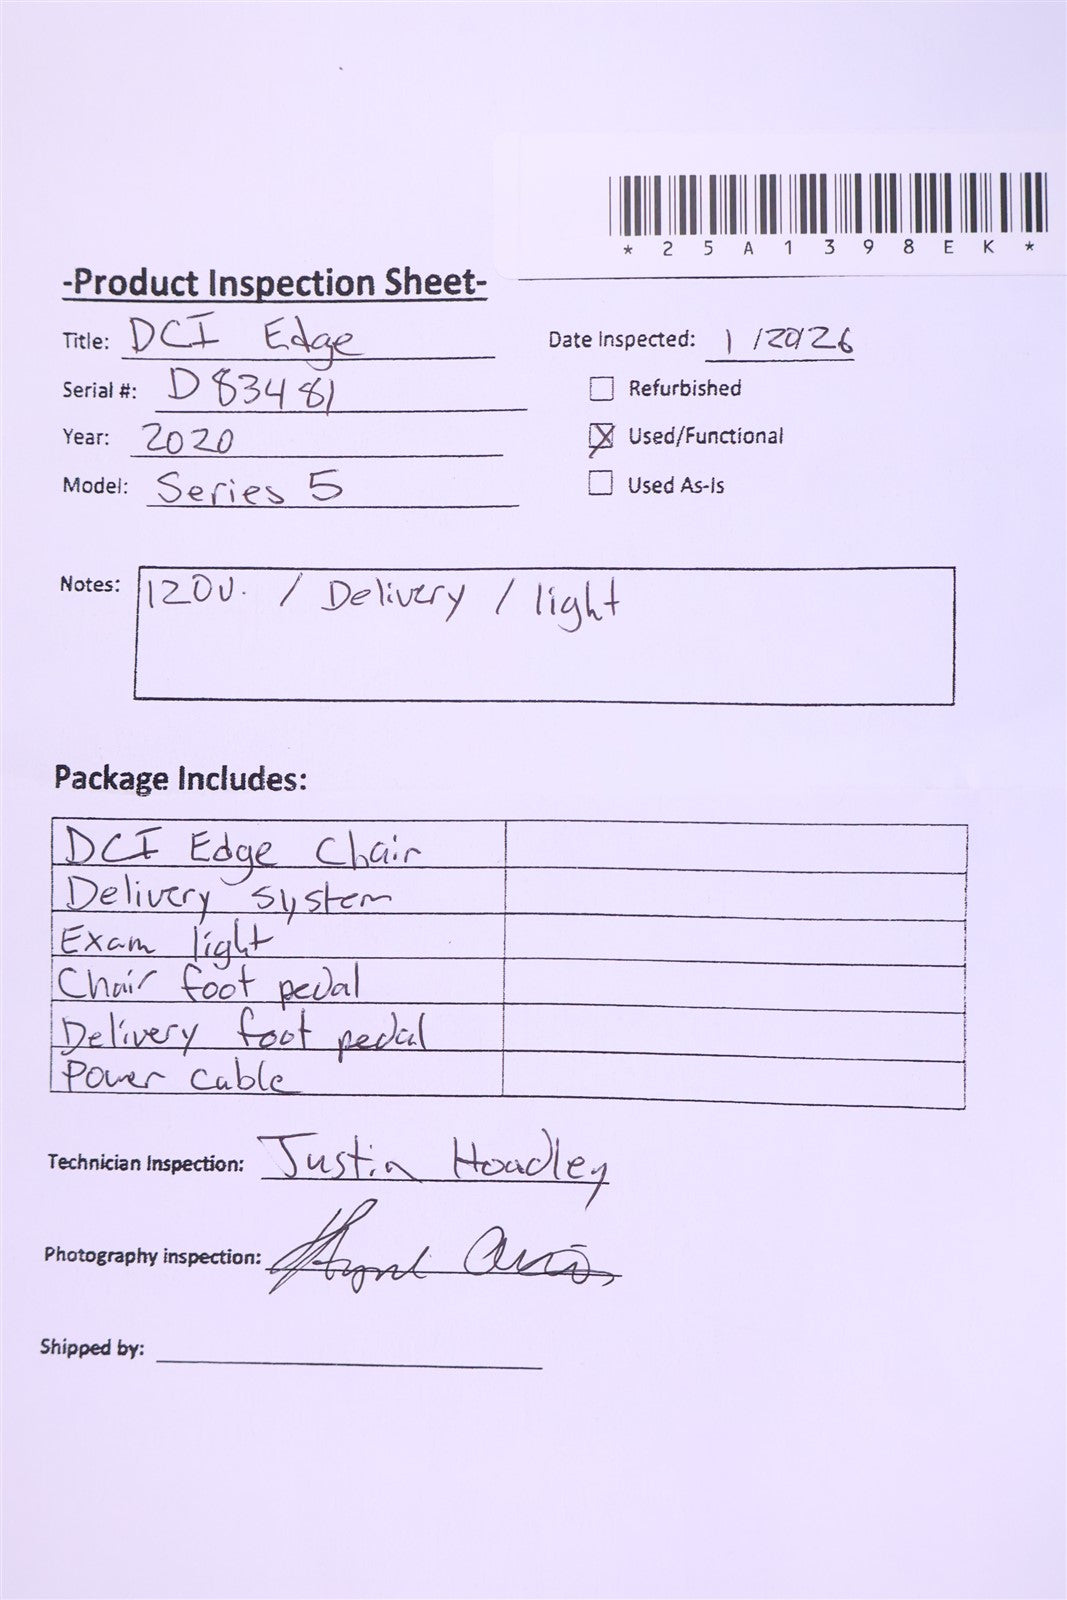 *25A1398EK*
-Product Inspection Sheet-
Title: DCI Edge
Date Inspected: 1/20/26
Serial #: D83481
Refurbished
Year: 2020
Used/Functional
Model: Series 5
Used As-Is
Notes: 120V. / Delivery / light
Package Includes:
DCI Edge Chair
Delivery system
Exam light
Chair foot pedal
Delivery foot pedal
Power cable
Technician Inspection: Justin Hoadley
Photography inspection:
Shipped by: